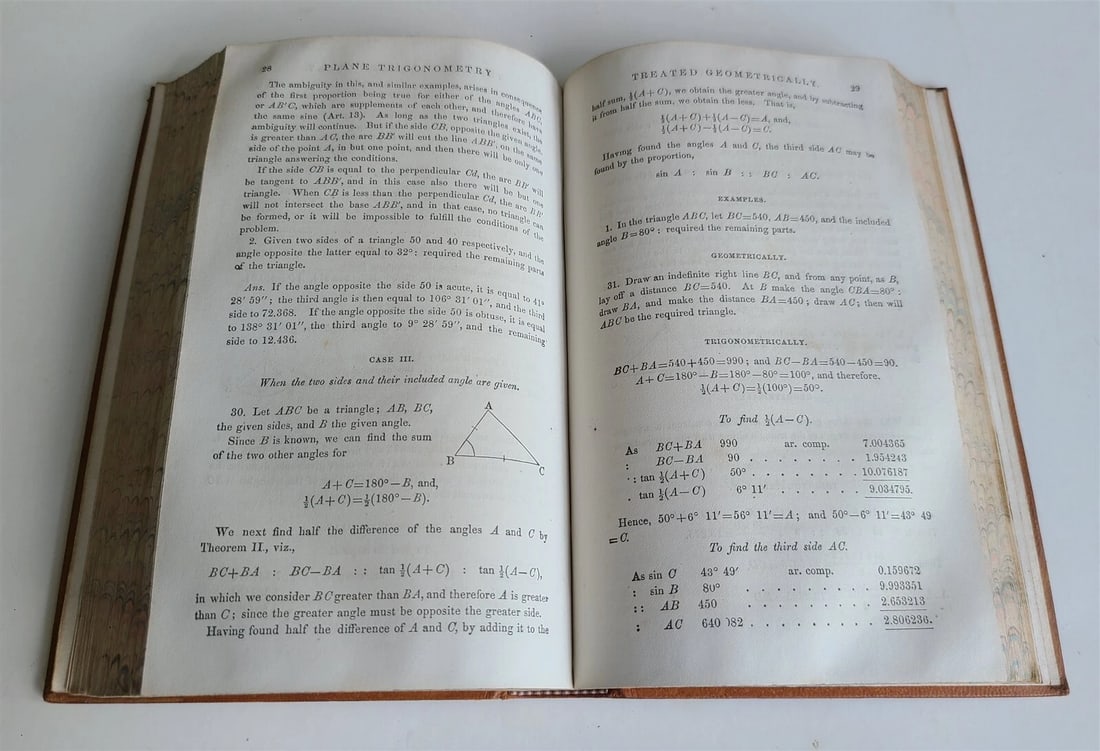 28 PLANE TRIGONOMETRY
The ambiguity in this, and similar examples, arises in consequence
of the first proportion being true for either of the angles ABC,
or AB'C, which are supplements of each other, and therefore have
the same sine (Art. 13). As long as the two triangles exist, the
ambiguity will continue. But if the side CB, opposite the given angle,
is greater than AC, the arc BB' will cut the line ABB', on the same
side of the point A, in but one point, and then there will be only one
triangle answering the conditions.
If the side CB is equal to the perpendicular Cd, the arc BB' will
be tangent to ABB', and in this case also there will be but one
triangle. When CB is less than the perpendicular Cd, the arc BB'
will not intersect the base ABB', and in that case, no triangle can
be formed, or it will be impossible to fulfill the conditions of the
problem.
2. Given two sides of a triangle 50 and 40 respectively, and the
angle opposite the latter equal to 32°: required the remaining parts
of the triangle.
Ans. If the angle opposite the side 50 is acute, it is equal to 41°
28' 59''; the third angle is then equal to 106° 31' 01'', and the third
side to 72.368. If the angle opposite the side 50 is obtuse, it is equal
to 138° 31' 01'', the third angle to 9° 28' 59'', and the remaining
side to 12.436.
CASE III.
When the two sides and their included angle are given.
30. Let ABC be a triangle; AB, BC,
the given sides, and B the given angle.
Since B is known, we can find the sum
of the two other angles for
A
B
C
A+C=180°−B, and,
½(A+C)=½(180°−B).
We next find half the difference of the angles A and C by
Theorem II., viz.,
BC+BA : BC−BA :: tan ½(A+C) : tan ½(A−C),
in which we consider BC greater than BA, and therefore A is greater
than C; since the greater angle must be opposite the greater side.
Having found half the difference of A and C, by adding it to the
TREATED GEOMETRICALLY. 29
half sum, ½(A+C), we obtain the greater angle, and by subtracting
it from half the sum, we obtain the less. That is,
½(A+C)+½(A−C)=A, and,
½(A+C)−½(A−C)=C.
Having found the angles A and C, the third side AC may be
found by the proportion,
sin A : sin B :: BC : AC.
EXAMPLES.
1. In the triangle ABC, let BC=540, AB=450, and the included
angle B=80°: required the remaining parts.
GEOMETRICALLY.
31. Draw an indefinite right line BC, and from any point, as B,
lay off a distance BC=540. At B make the angle CBA=80°:
draw BA, and make the distance BA=450; draw AC; then will
ABC be the required triangle.
TRIGONOMETRICALLY.
BC+BA=540+450=990; and BC−BA=540−450=90.
A+C=180°−B=180°−80°=100°, and therefore,
½(A+C)=½(100°)=50°.
To find ½(A−C).
As BC+BA 990 ar. comp. 7.004365
: BC−BA 90 . . . . . . . . 1.954243
:: tan ½(A+C) 50° . . . . . . . . 10.076187
: tan ½(A−C) 6° 11' . . . . . . 9.034795.
Hence, 50°+6° 11'=56° 11'=A; and 50°−6° 11'=43° 49
=C.
To find the third side AC.
As sin C 43° 49' ar. comp. 0.159672
: sin B 80° . . . . . . . . . 9.993351
:: AB 450 . . . . . . . . . 2.653213
: AC 640 082 . . . . . . . . . 2.806236.